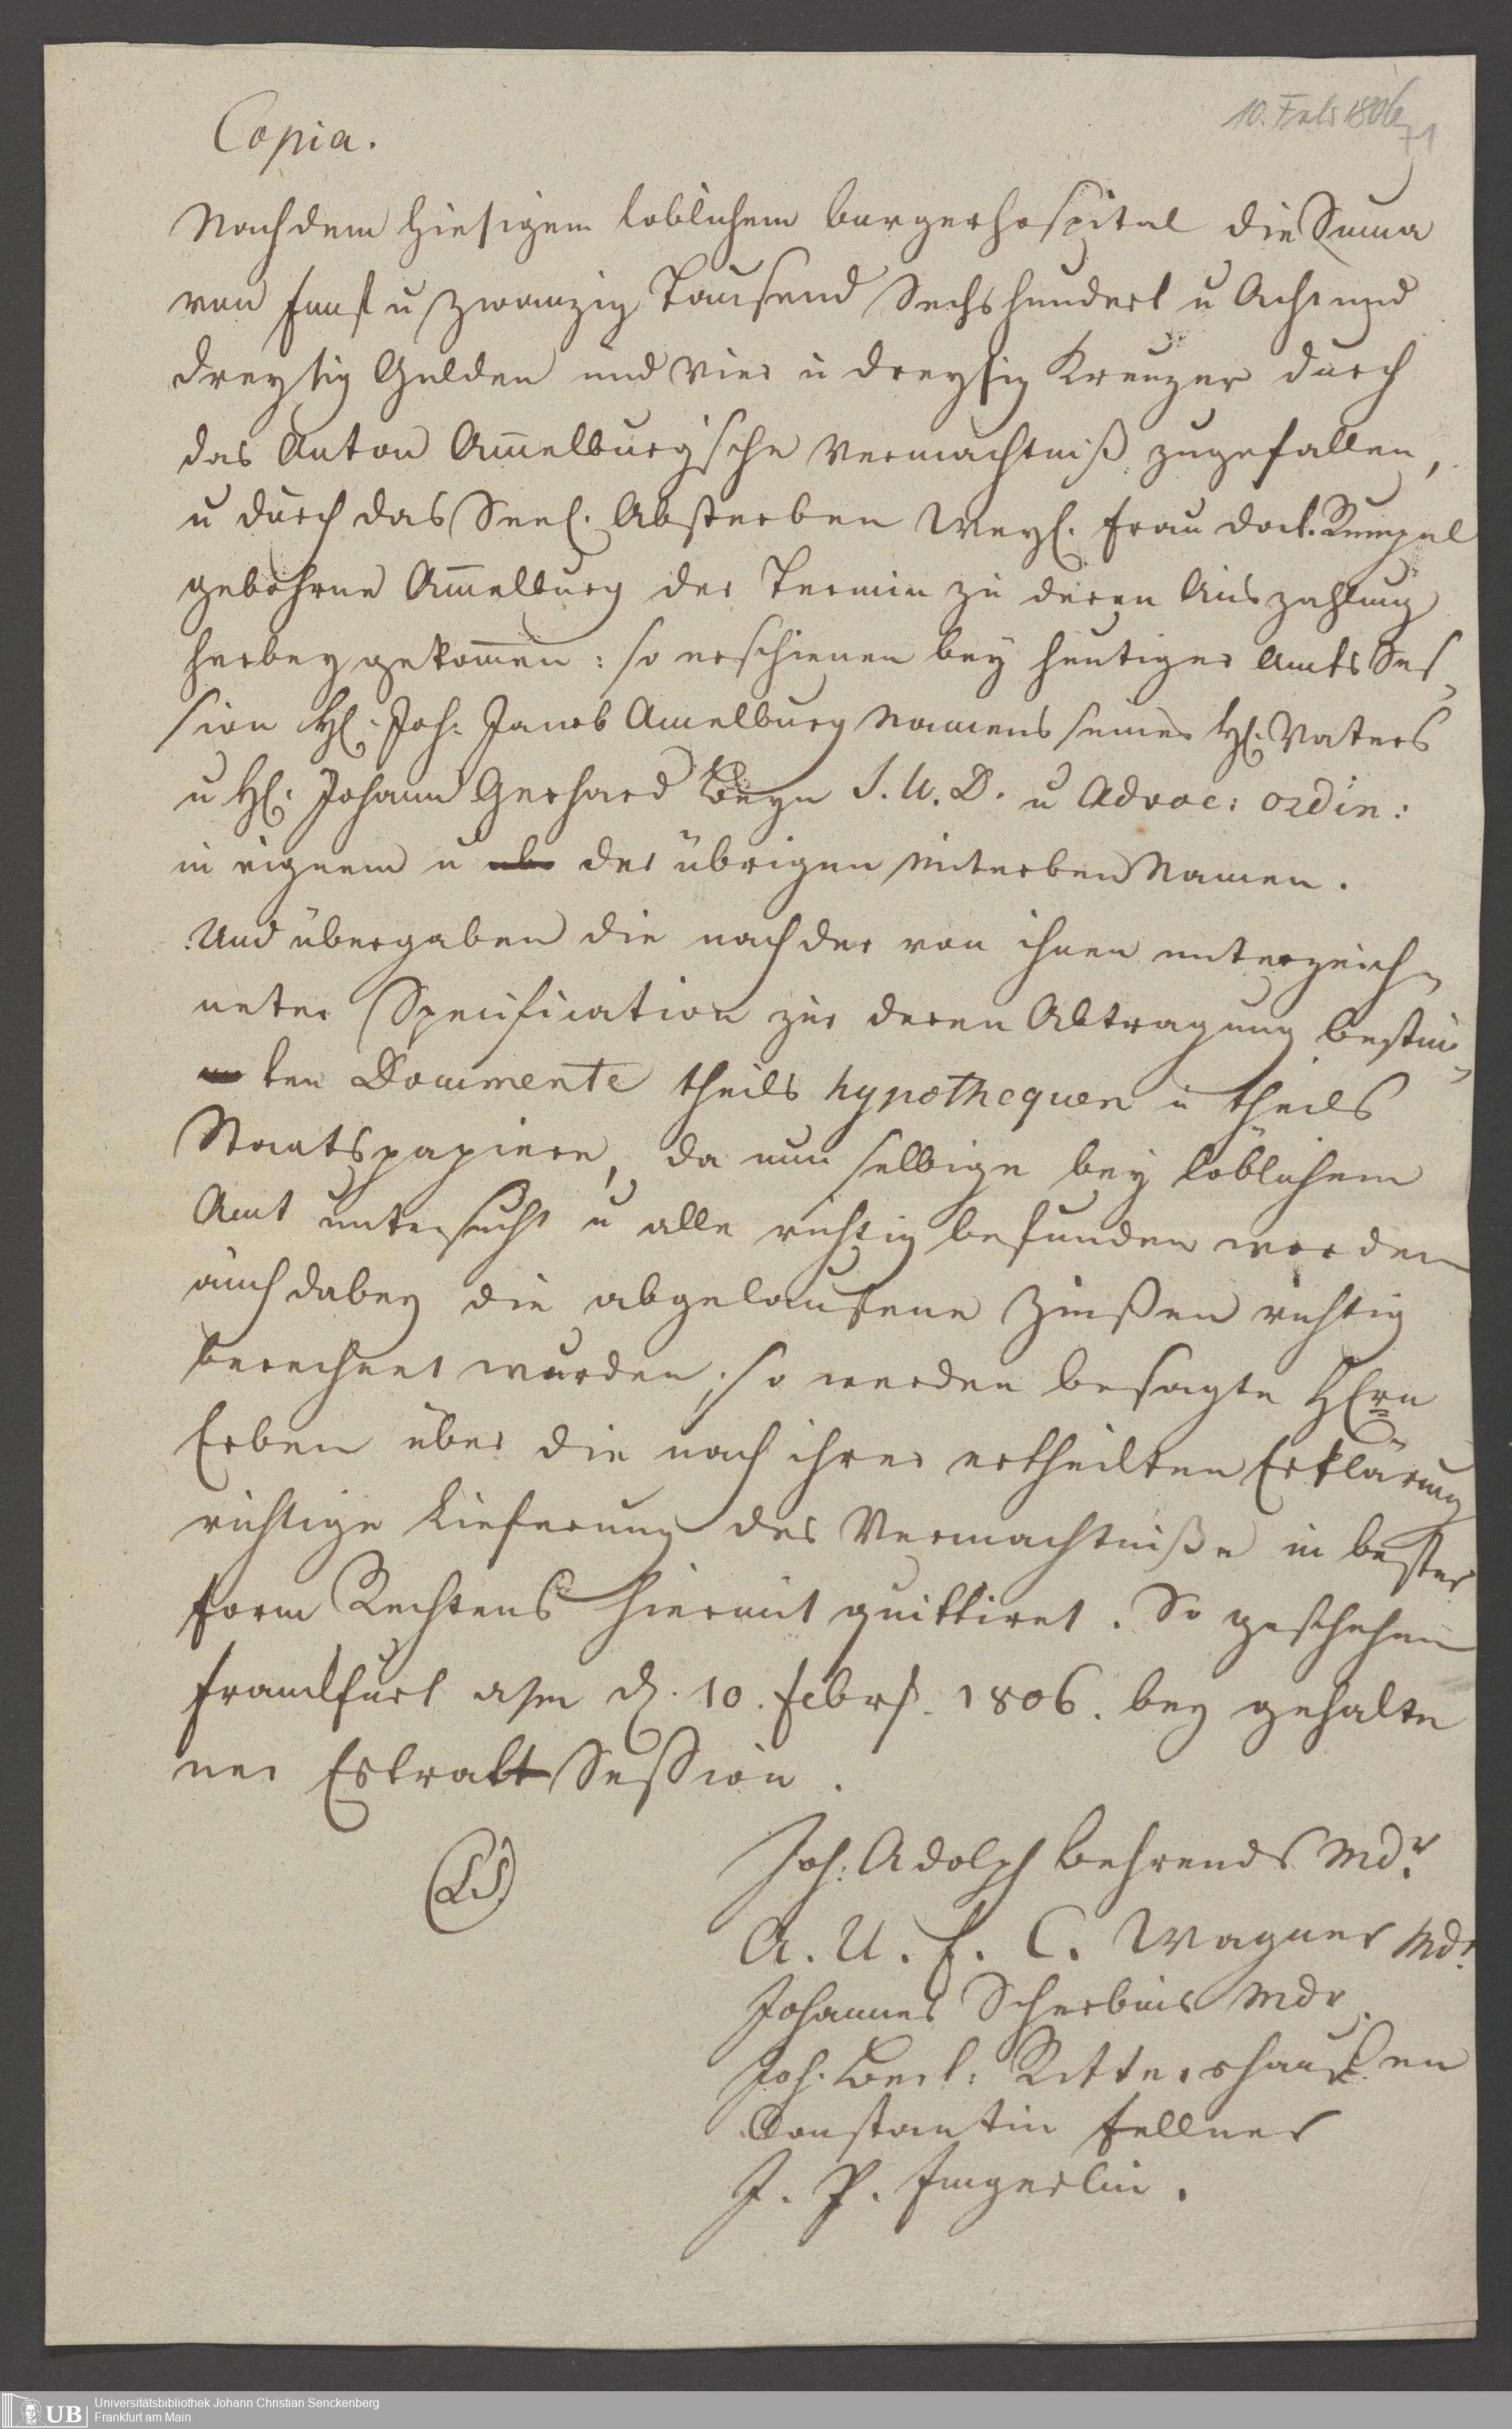 10. Febr 1806
71
Copia.
Nachdem hiesigem loblichem burgerhospital die Suma
von funf u zwanzig Tausend Sechshundert u Acht und
dreysig Gulden und Vier u dreysig Kreuzer durch
das Anton Am̅elburg'sche Vermachtniß zugefallen,
u durch das Seel. Absterben Weyl. frau doct. Rumpel
gebohrne Am̅elburg der Termin zu deren Auszahlung
herbey gekom̅en: so erschienen bey heutiger Amts Ses
sion H. Joh: Jacob Amelburg Namens seines H. Vaters
u H. Johann Gerhard J. U. D. u Advoc: ordin:
in eignem u der übrigen Miterben Namen.
Und übergaben die nach der von ihnen unterzeich
neter Specification zur deren Abtragung bestim
ten Documente theils hypothequen u theils
Staatspapiere, da nun selbige bey löblichem
Amt untersucht u alle richtig befunden worden
auch dabey die abgelaufene Zinßen richtig
berechnet wurden; so werden besagte HErn
Erben über die nach ihrer ertheilten Erklärung
richtige Lieferung des Vermachtnißes in bester
form Rechtens hiermit quittiret. So geschehen
franckfurt a/m d. 10. febr. 1806. bey gehalte
ner Extrakt Session.
LS
Joh: Adolph Behrends MDr.
A. U. f. C. Wagner MDr.
Johannes Scherbius MDr.
Joh. Rittershaußen
Constantin Fellner
J. P. Imgerlin.
UB
Universitätsbibliothek Johann Christian Senckenberg
Frankfurt am Main